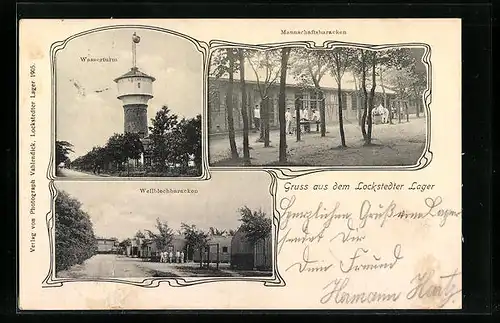 Verlag von Photograph Vahlendick, Lockstedter Lager 1905.
Wasserturm
Mannschaftsbaracken
Wellblechbaracken
Gruss aus dem Lockstedter Lager
Herzlichen Gruß vom Lager
sendet Dir
Dein Freund
Hermann